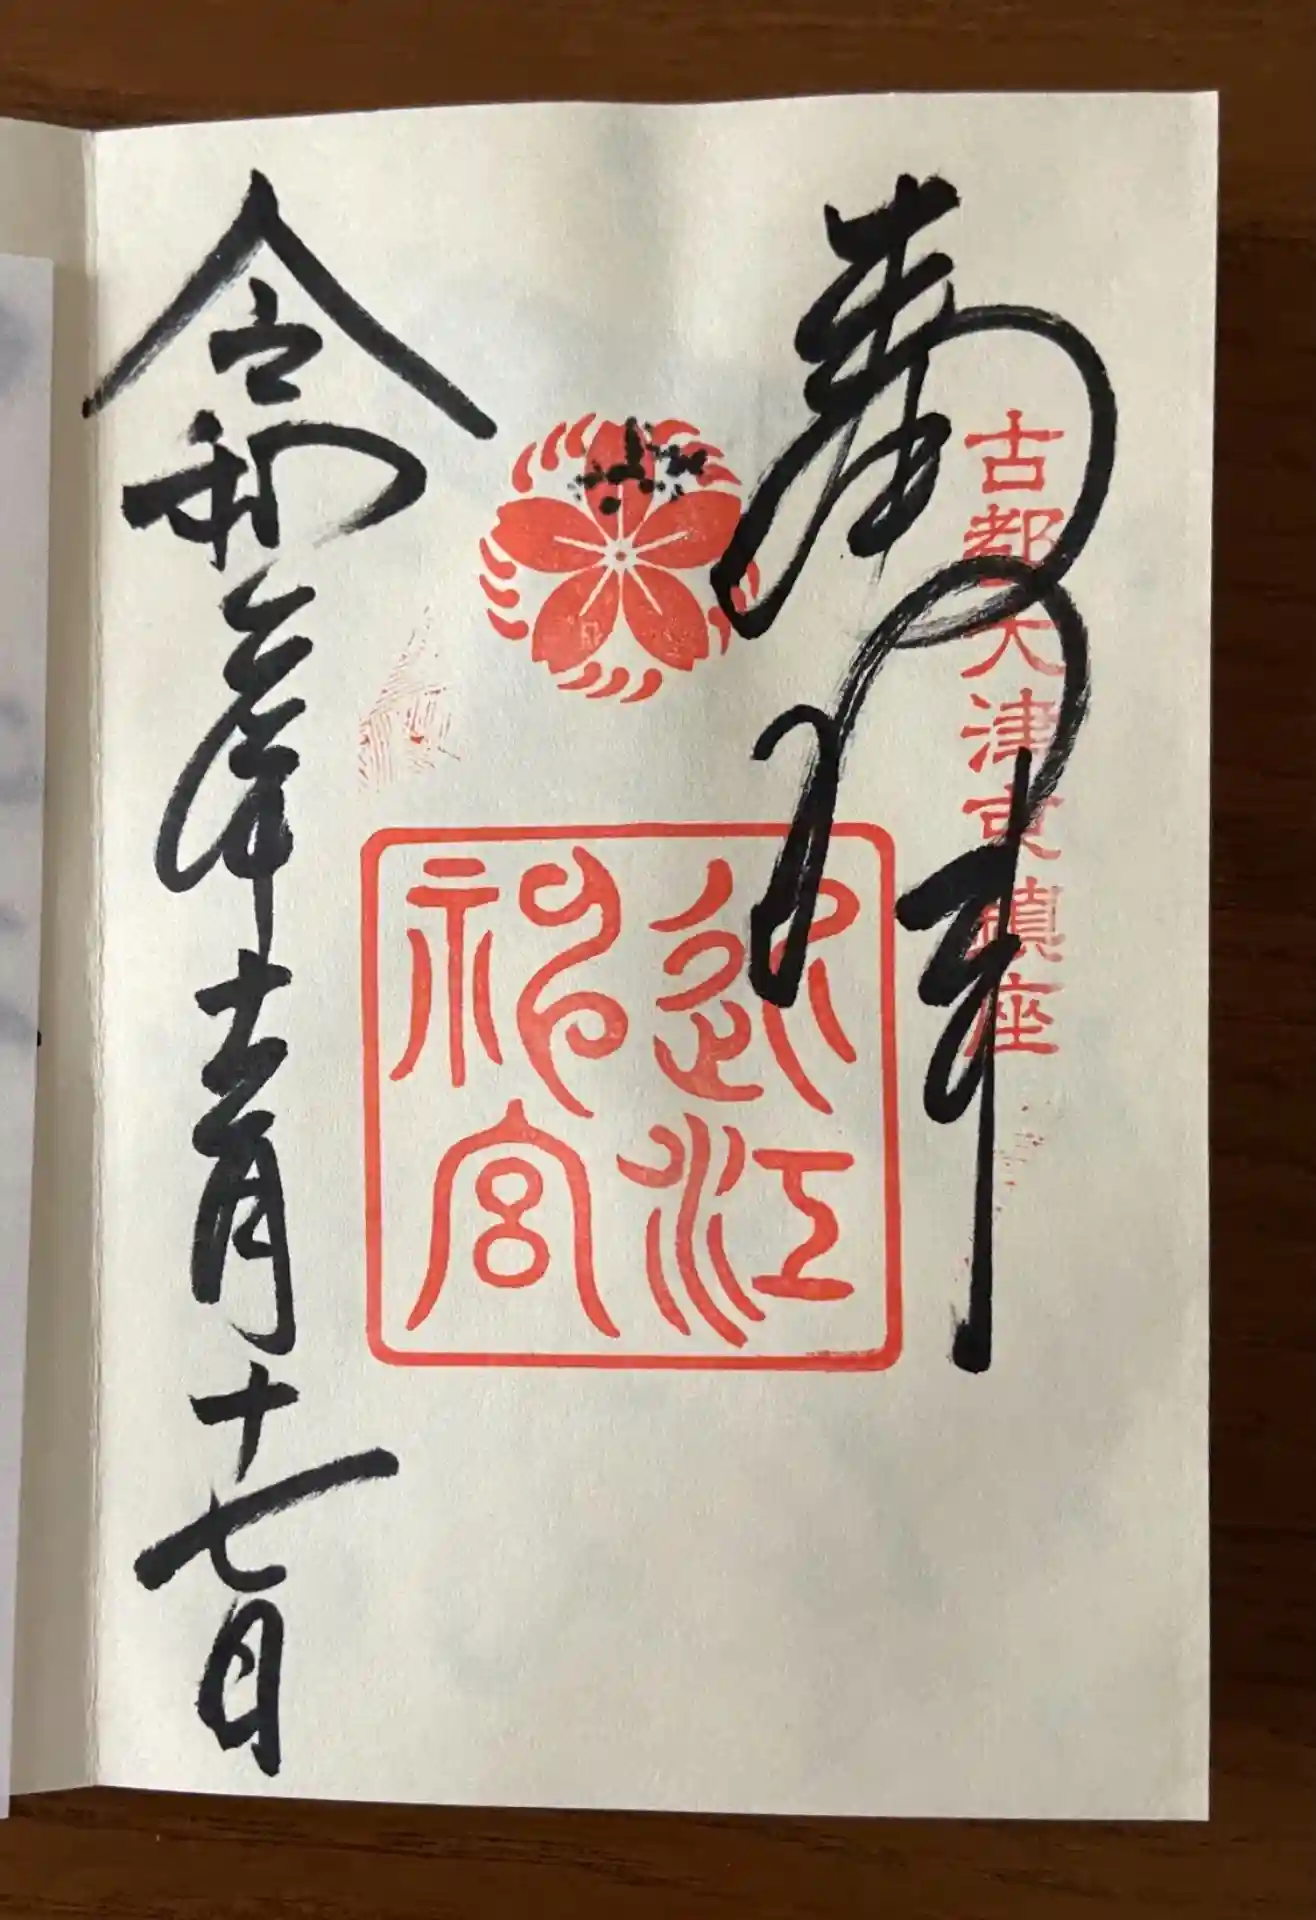 奉拝
古都大津京鎮座
近江
神宮
令和六年十二月十七日